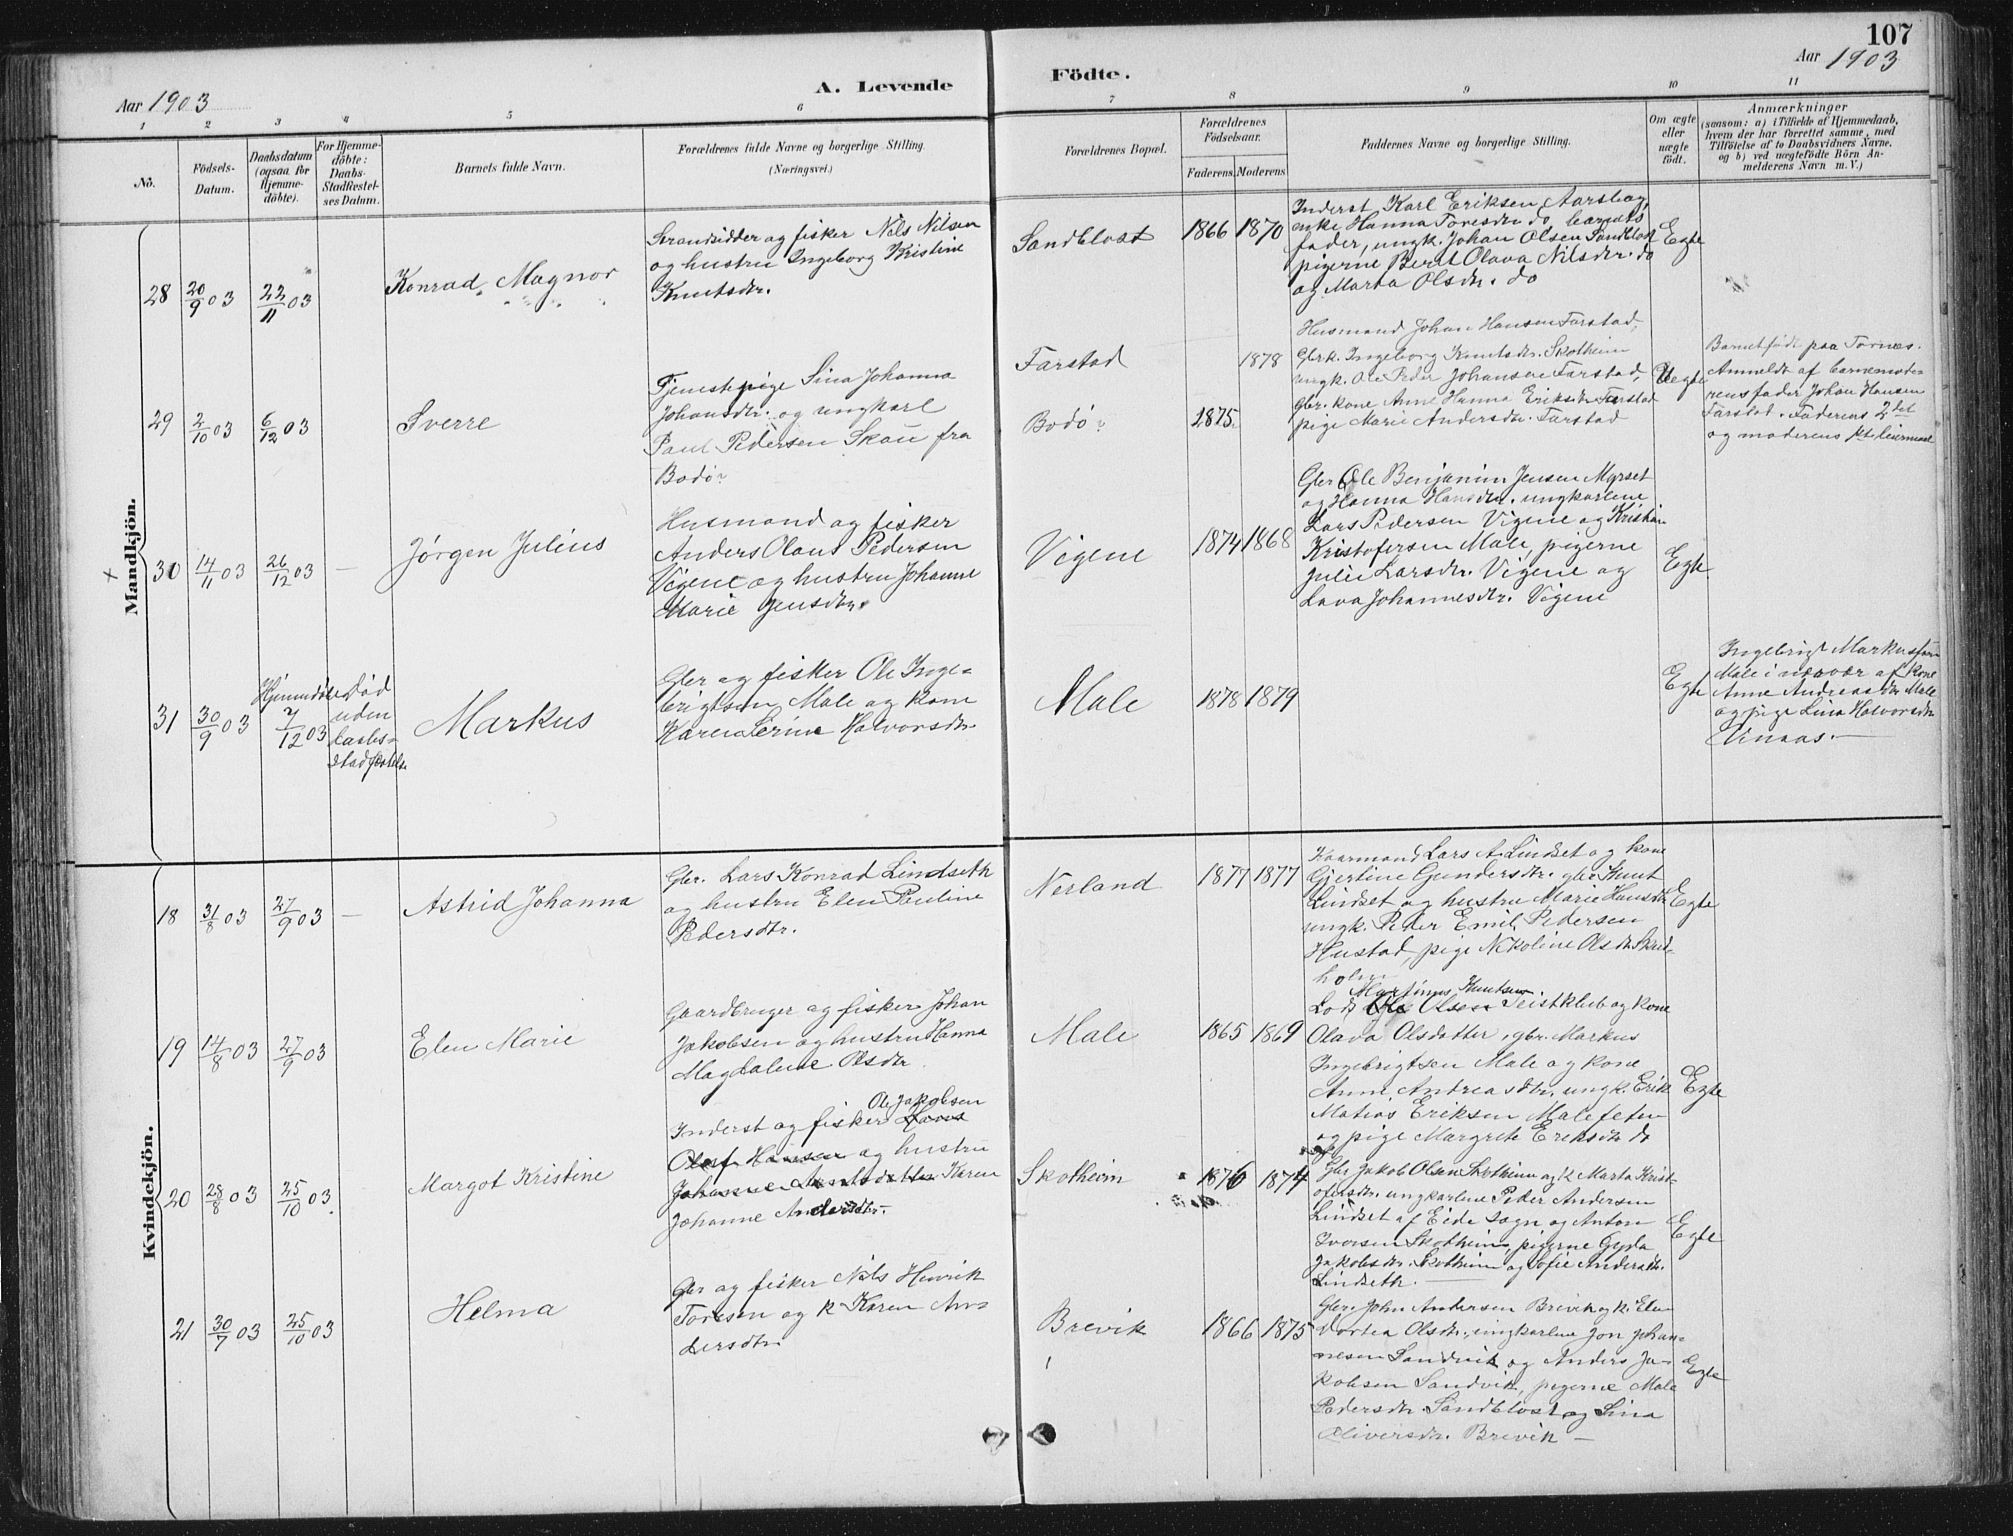 107
Aar 1903
A. Levende
Födte.
Aar 1903
1 2 3 4 5 6 7 8 9 10 11
No.
Födsels-
Datum.
Daabsdatum
(ogsaa for
Hjemme-
döbte).
For Hjemme-
döbte:
Daabs-
Stadfæstel-
ses Datum.
Barnets fulde Navn.
Forældrenes fulde Navne og borgerlige Stilling.
(Næringsvei.)
Forældrenes Bopæl.
Forældrenes
Födselsaar.
Faderens. Moderens
Faddernes Navne og borgerlige Stilling.
Om ægte
eller
uægte
födt.
Anmærkninger
(saasom: a) i Tilfælde af Hjemmedaab,
hvem der har forrettet samme, med
Tilföielse af to Daabsvidners Navne,
og b) ved uægtefödte Börn An-
melderens Navn m. V.)
Mandkjön.
28 20/9 03 22/11 03
Konrad Magnor
Strandsidder og fisker Nils Nilsen
og hustru Ingeborg Kristine
Knutsdtr.
Sandblost
1866 1870
Inderst Karl Eriksen Aarsbog,
enke Hanna Toresdtr. do, barnets
fader, ungk. Johan Olsen Sandblost
pigerne Berit Olava Nilsdtr. do
og Marta Olsdtr. do
Egte
29 2/10 03 6/12 03
Sverre
Tjenestepige Sina Johanna
Johansdtr. og ungkarl
Paul Pedersen Skau fra
Bodø
Farstad
Bodø
1875. 1878
Husmand Johan Hansen Farstad,
Gbrk. Ingeborg Knutsdtr. Skotheim
ungk. Ole Peder Johansen Farstad,
gbr. kone Anne Hanna Eriksdtr Farstad
pige Marie Andersdtr. Farstad
Uegte
Barnet født paa Tornes.
Anmeldt af barnemode-
rens fader Johan Hansen
Farstad. Faderens 2det
og moderens 1ste leiermaal
x 30 14/11 03 26/12 03 —
Jørgen Julius
Husmand og fisker
Anders Olaus Pedersen
Vigene og hustru Johanne
Marie Jensdtr.
Vigene
1874 1868
Gbr Ole Benjamin Jensen Myrset
og Hanna Hansdtr. ungkarlene
Lars Pedersen Vigene og Kristian
Kristofersen Male, pigerne
Julie Larsdtr. Vigene og
Lava Johannesdtr. Vigene
Egte
31 30/9 03
Hjemmedøbt
7/12 03
død
uden
daabs-
stadfæstelse
Markus
Gbr og fisker Ole Inge-
brigtsen Male og kone
Karen Serine Halvorsdtr
Male
1878 1879
Egte
Ingebrigt Markussen
Male i nærvær af kone
Anne Andreasdtr Male
og pige Lina Halvorsdtr
Vinaas. —
Kvindekjön.
18 31/8 03 27/9 03 —
Astrid Johanna
Gbr. Lars Konrad Lindseth
og hustru Elen Pauline
Pedersdtr.
Nerland
1877 1877
Kaarmand Lars A. Lindset og kone
Gjertine Gundersdtr. gbr. Knut
Lindset og hustru Marie Hansdtr
ungk. Peder Emil Pedersen
Hustad, pige Nikoline Olsdtr Skud-
holm
Egte
19 14/8 03 27/9 03
Elen Marie
Gaardbruger og fisker Johan
Jakobsen og hustru Hanna
Magdalene Olsdtr
Male
1865 1869
Martinus Knutsen
Lods Ole Olsen Teistklub og kone
Olava Olsdatter, gbr. Markus
Ingebrigtsen Male og kone
Anne Andreasdtr. ungk. Erik
Matias Eriksen Malefeten
og pige Margrete Eriksdtr do
Egte
20 28/8 03 25/10 03.
Margot Kristine
Ole Jakobsen
Inderst og fisker Hans
Olaf Hansen og hustru
Johanne Karen
Johanne Andersdtr.
Skotheim
1876 1874
Gbr. Jakob Olsen Skotheim og k Marta Krist-
ofersdtr. ungkarlene Peder Andersen
Lindset af Eide sogn og Anton
Iversen Skotheim, pigerne Gyda
Jakobsdtr. Skotheim og Sofie Andersdtr.
Lindseth. —
Egte
21 30/7 03 25/10 03
Helma
Gbr og fisker Nils Henrik
Toresen og k Karen An-
dersdtr
Brevik
1866 1875
Gbr. John Andersen Brevik og k. Elen
Dortea Olsdtr., ungkarlene Jon Johan-
nesen Sandvik og Anders Ja-
kobsen Sandvik, pigerne Male
Pedersdtr. Sandblost og Sina
Oliversdtr. Brevik —
Egte